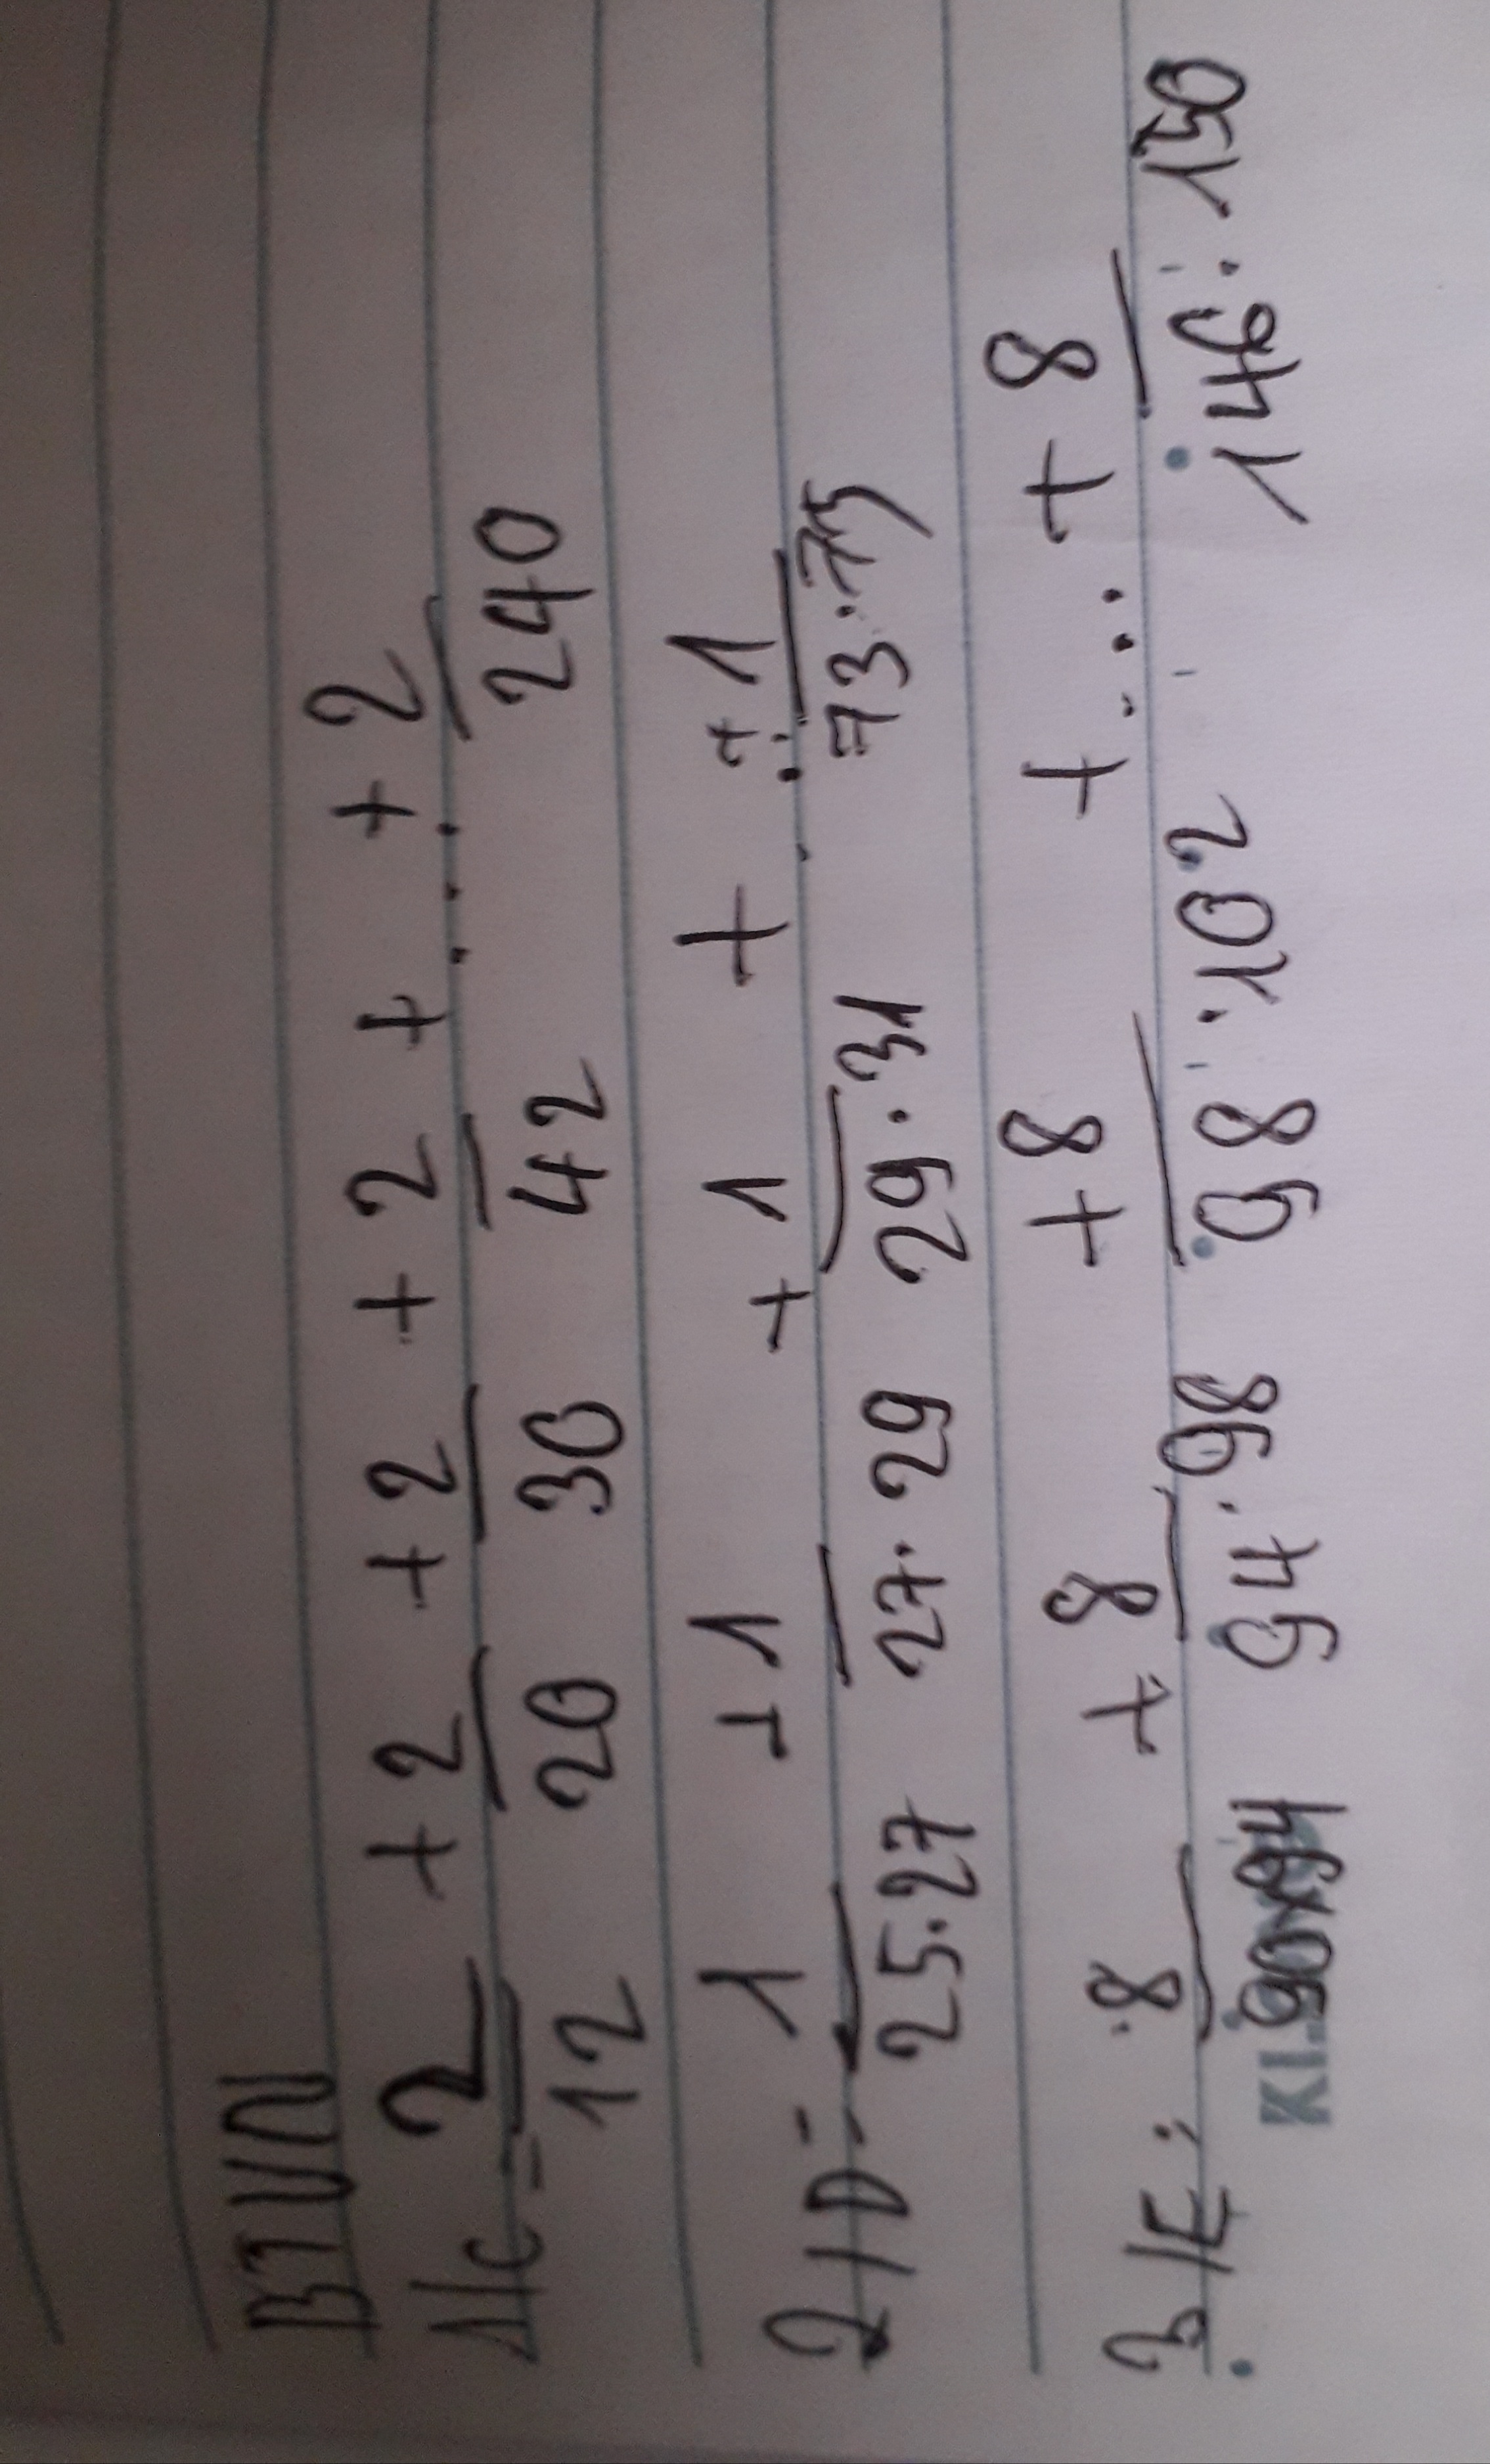 BTVN
1/C = 2/12 + 2/20 + 2/30 + 2/42 + ... + 2/240
2/D = 1/25.27 + 1/27.29 + 1/29.31 + ... + 1/73.75
3/E = 8/90x94 + 8/94.98 + 8/98.102 + ... + 8/146.150